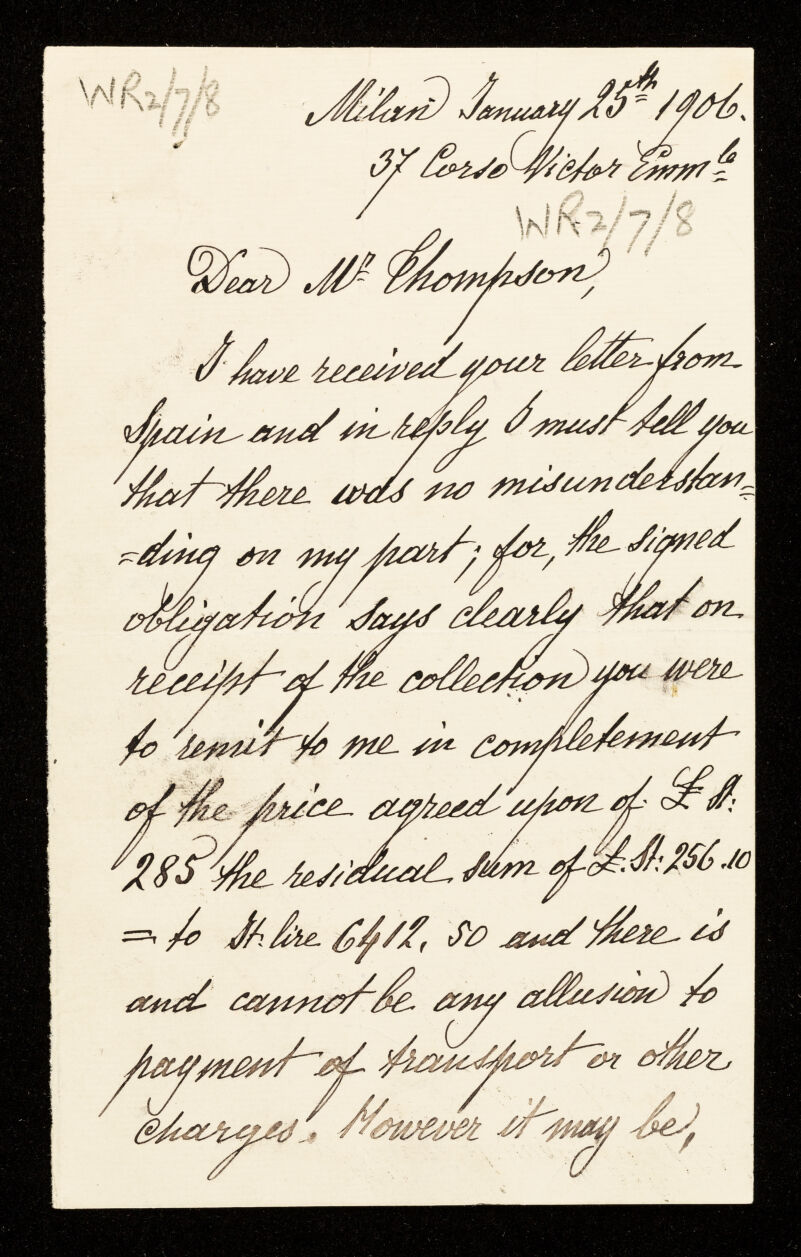 WR2/7/8
Milan January 25th 1906.
37 Corso Victor Emmle
WR2/7/8
Dear Mr Thompson,
I have received your letter from
Spain and in reply I must tell you
that there was no misunderstan=
=ding on my part; for, the signed
obligation says clearly that on
receipt of the collection you were
to remit to me in completement
of the price agreed upon of £ St:
285 the residual sum of £.St: 256.10
= to It. lire 6412.50 and there is
and cannot be any allusion to
payment of transport or other
charges. However it may be,